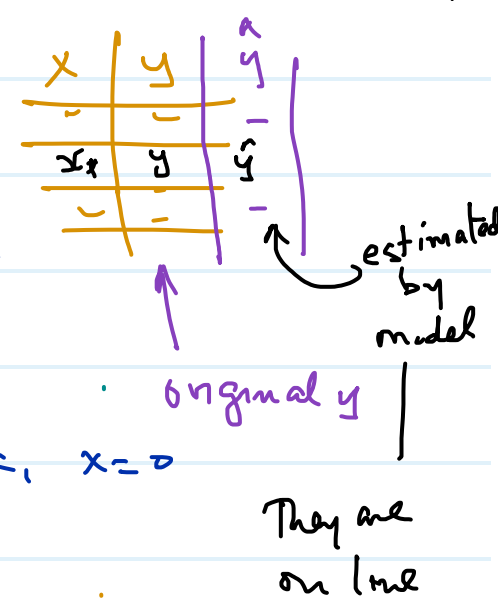 x y ŷ
- - -
x* y ŷ
- - -
estimated
by
model
original y
x = 0
They are
on line